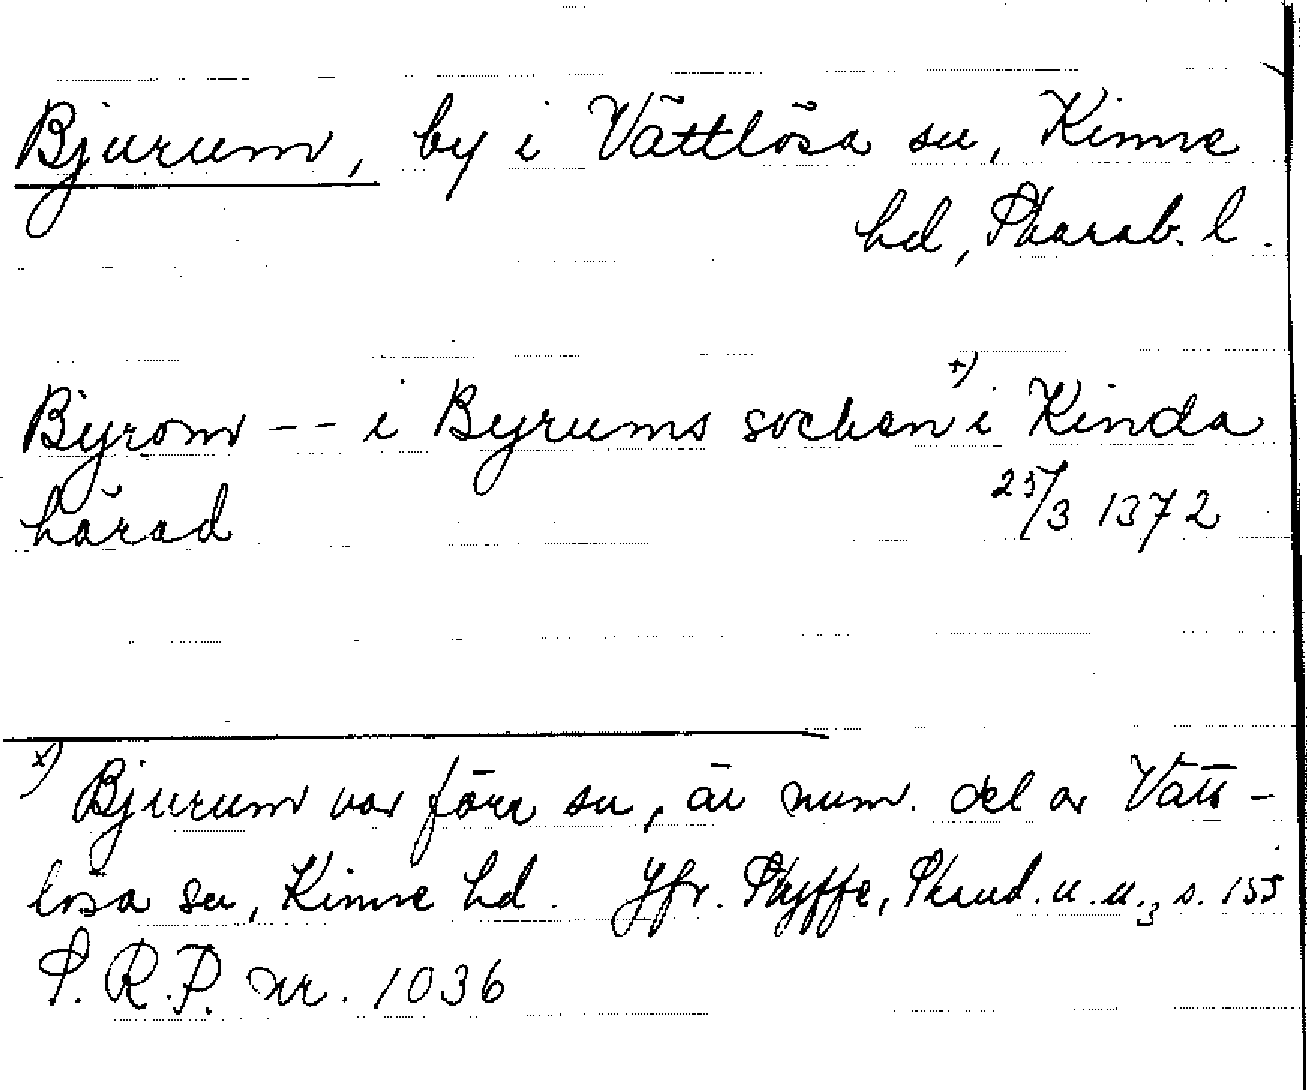 Bjurum, by i Vättlösa sn, Kinne
hd, Skarab. l.
Byrom -- i Byrums socken x) i Kinda
härad 25/3 1372
x) Bjurum var förr sn, är num. del av Vätt-
lösa sn, Kinne hd. Jfr. Styffe, Skand. u. u.3 s. 155
S.R.P. nr. 1036